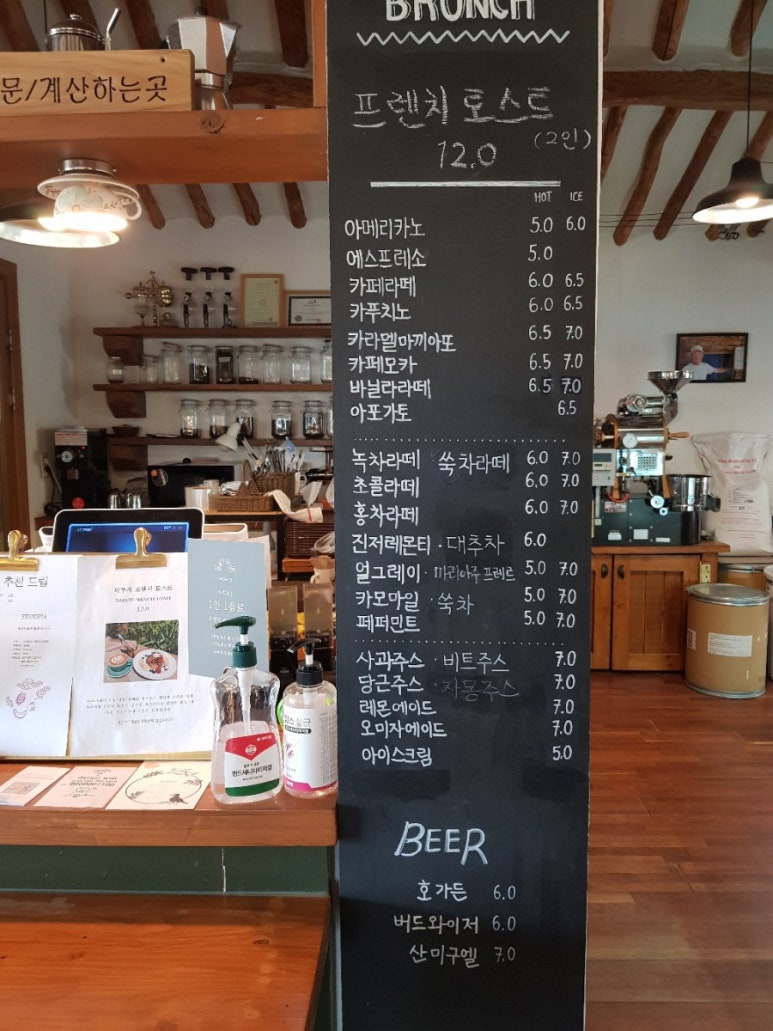 문/계산하는곳
BRUNCH
프렌치 토스트
12.0 (2인)
HOT ICE
아메리카노 5.0 6.0
에스프레소 5.0
카페라떼 6.0 6.5
카푸치노 6.0 6.5
카라멜마끼아또 6.5 7.0
카페모카 6.5 7.0
바닐라라떼 6.5 7.0
아포가토 6.5
녹차라떼 · 쑥차라떼 6.0 7.0
초콜라떼 6.0 7.0
홍차라떼 6.0 7.0
진저레몬티 · 대추차 6.0
얼그레이 · 마리아쥬 프레르 5.0 7.0
카모마일 · 쑥차 5.0 7.0
페퍼민트 5.0 7.0
사과주스 · 비트주스 7.0
당근주스 · 자몽주스 7.0
레몬에이드 7.0
오미자에이드 7.0
아이스크림 5.0
BEER
호가든 6.0
버드와이저 6.0
산미구엘 7.0
추천 드립
ETHIOPIA
12.0
1인 1음료
핸드새니타이저겔